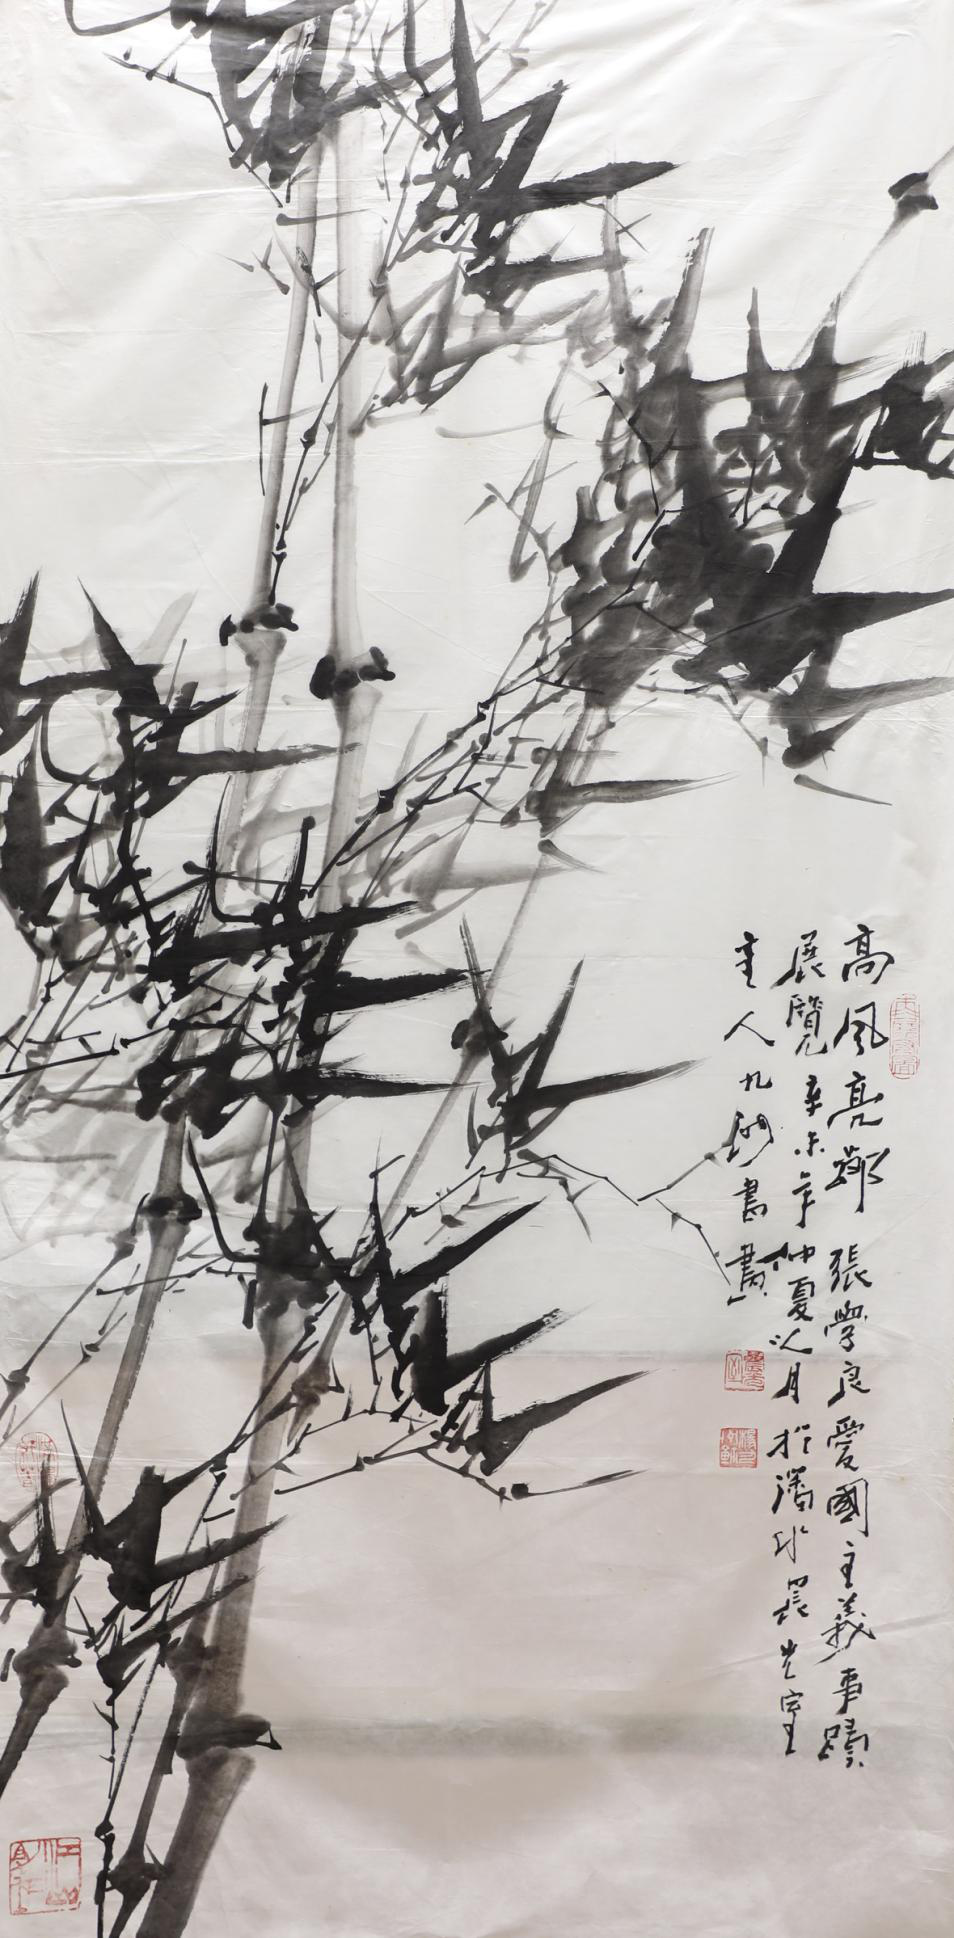 高風亮節 張學良愛國主義事蹟
展覽 辛未年仲夏之月於瀋水晨光室
主人九書畫